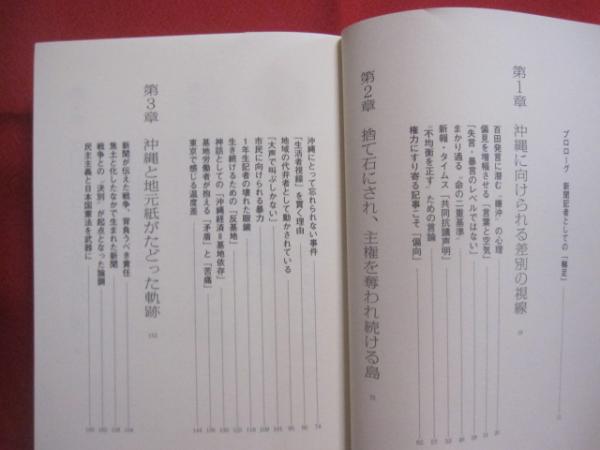 プロローグ 新聞記者としての「輸足」
第1章 沖縄に向けられる差別の視線
百田発言に潜む「嫌沖」の心理
偏見を増幅させる「言葉と空気」
「失言・暴言のレベルではない」
まかり通る「命の二重基準」
新報・タイムス「共同抗議声明」
「不均衡を正す」ための言論
権力にすり寄る記事こそ「偏向」
第2章 捨て石にされ、主権を奪われ続ける島
沖縄にとって忘れられない事件
「生活者視線」を貫く理由
地域の代弁者として動かされている
「大声で叫ぶしかない」
市民に向けられる暴力
1年生記者の壊れた眼鏡
生き続けるための「反基地」
神話としての「沖縄経済=基地依存」
基地労働者が抱える「矛盾」と「苦痛」
東京で感じる温度差
第3章 沖縄と地元紙がたどった軌跡
新聞が伝えた戦争、背負うべき責任
焦土と化したなかで生まれた新聞
戦争との「決別」が起点となった論調
民主主義と日本国憲法を武器に